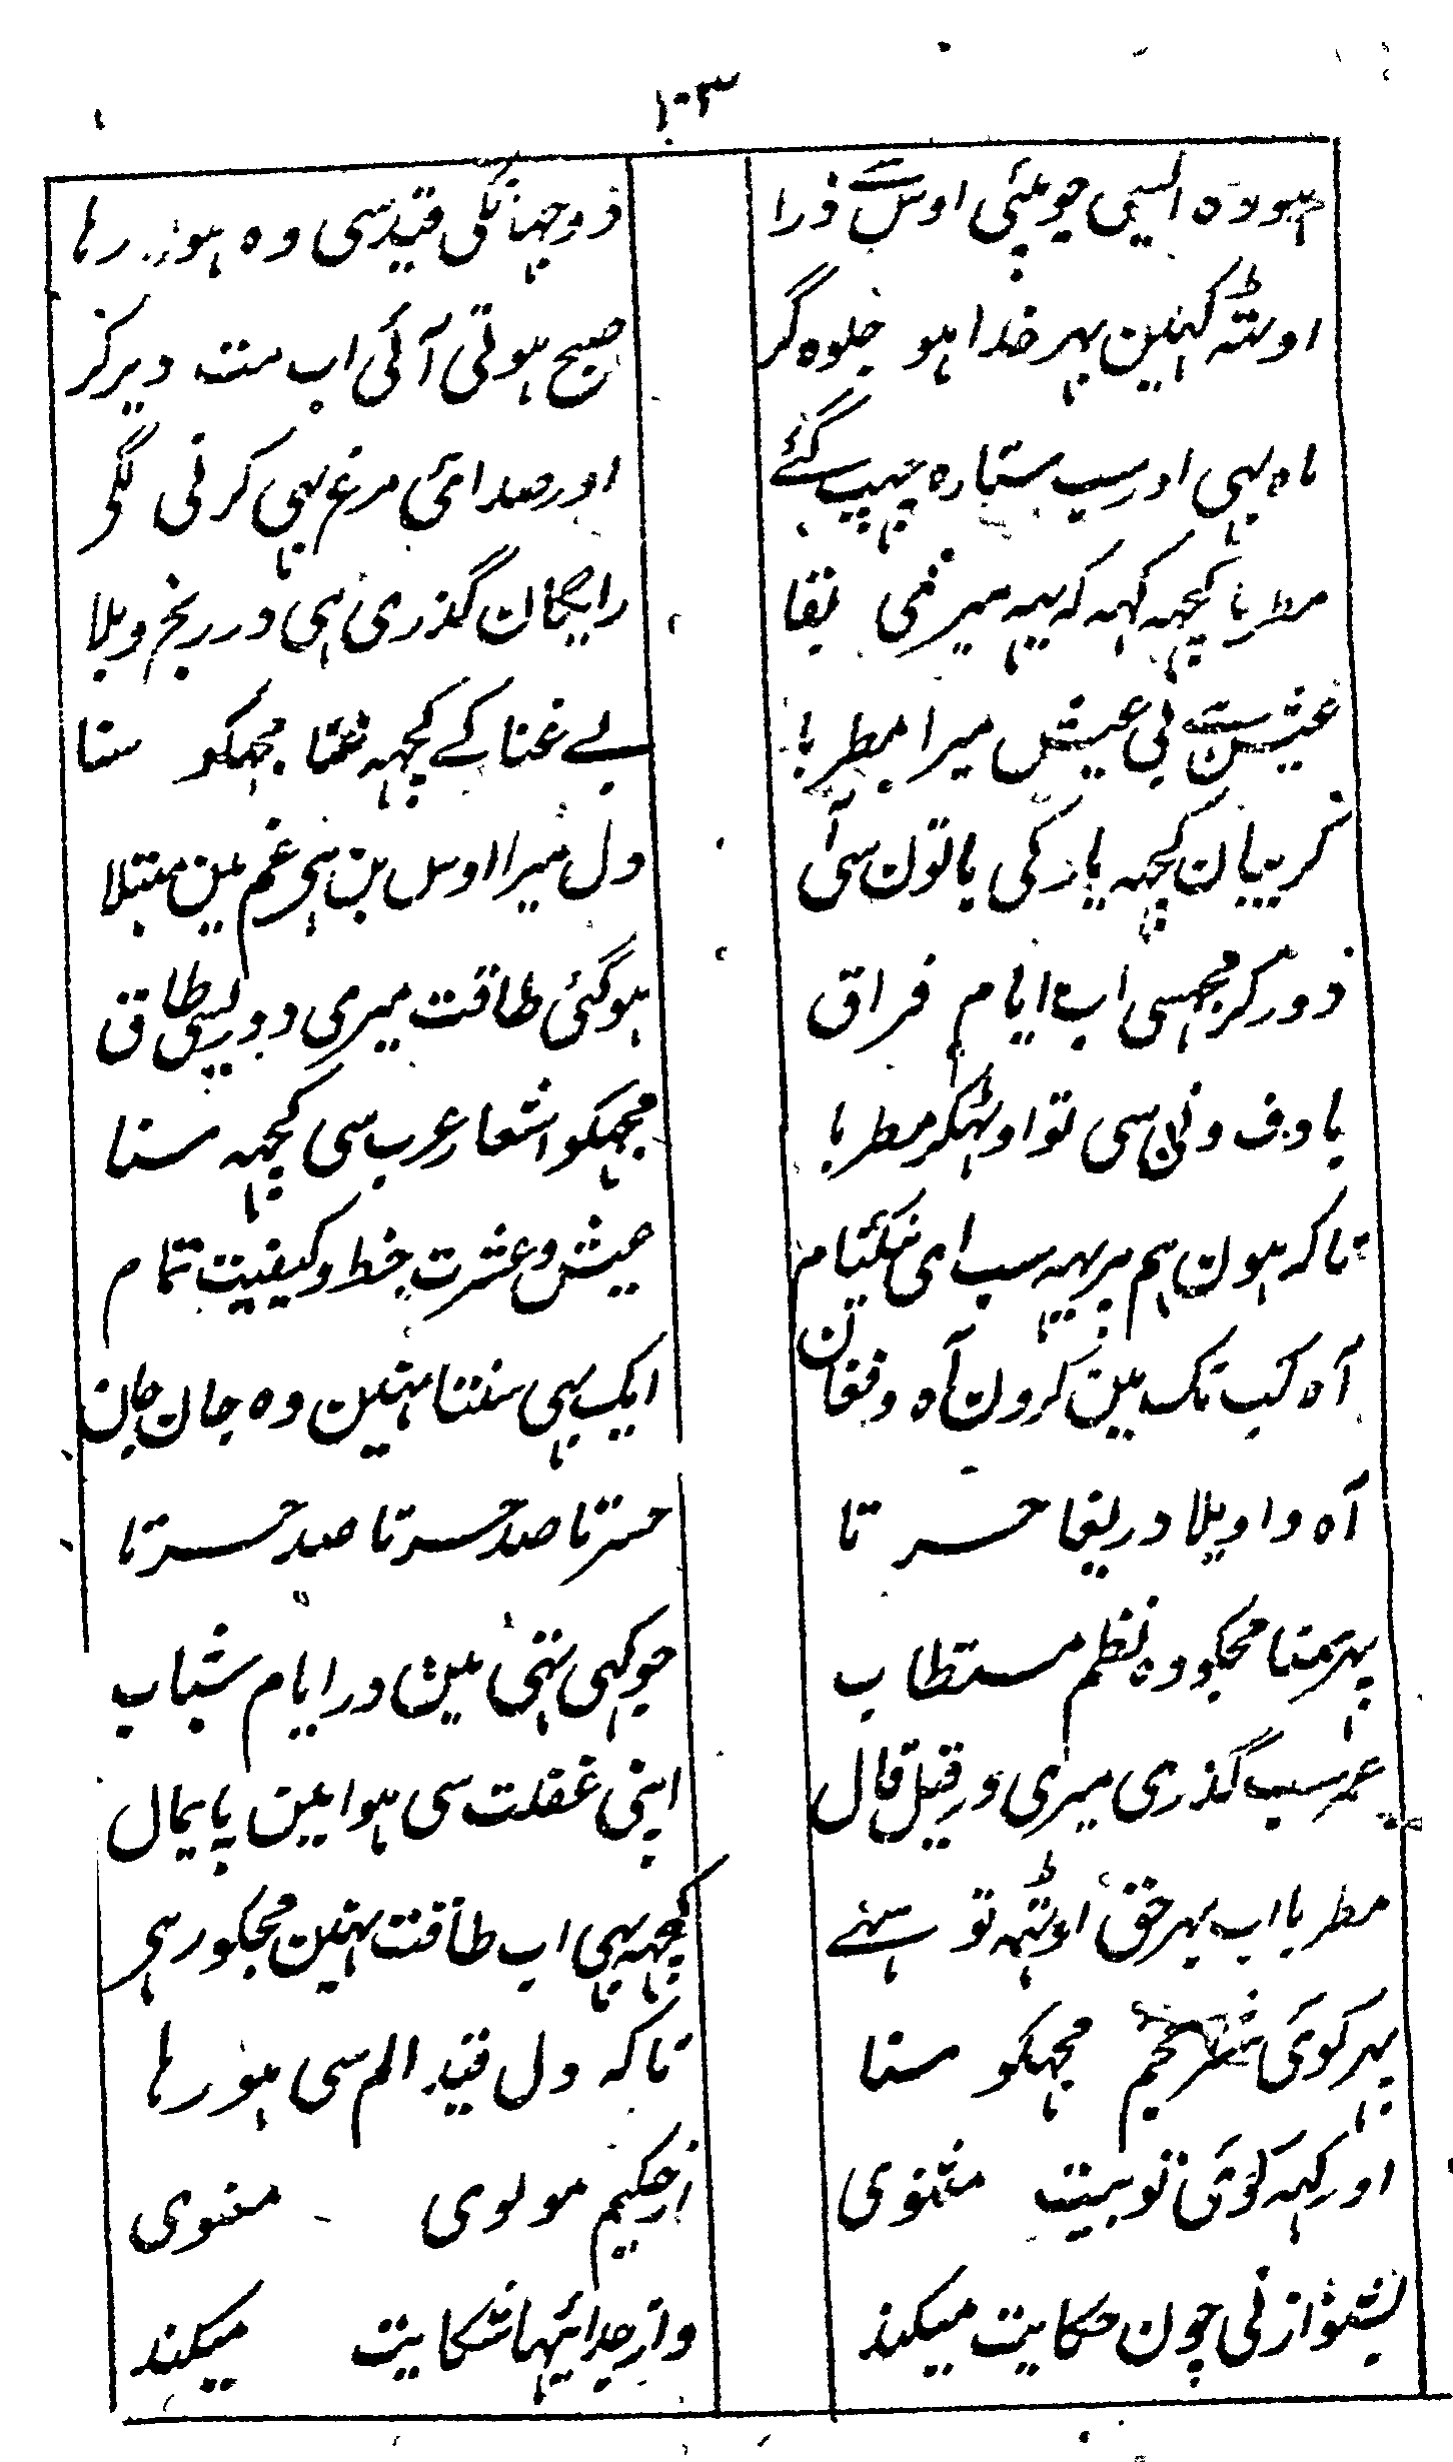 ۱۰۳
ہو وہ ایسی جو پئی اوس سے ذرا
دوجہانکی قیدسی وہ ہو رہا
اوٹہ کہین بہر خدا ہو جلوہ گر
صبح ہوتی آئی اب مت دیر کر
ماہ بہی اور سب ستارہ چہپ گئے
اور صدا ئی مرغ بہی کرنی لگی
مطربا کچہہ کہہ کہ یہہ میر نمی بقا
رایگان گذری ہی در رنج و بلا
عیش ستی بی عیش میرا مطربا
بے غنا کے کچہہ غنا مجہکو سنا
کر بیان کچہہ یار کی باتون سی آ
دل میرا اوس بن ہی غم مین مبتلا
دور کر مجہسی اب ایام فراق
ہوگئی طاقت میری دوری سی طاق
با دف ونی سی تو اوٹہکر مطربا
مجہکو اشعار عرب سی کچہہ سنا
تاکہ ہون ہم پر یہہ سب ای نیکنام
عیش وعشرت حظ وکیفیت تمام
آہ کب تک مین کرون آہ وفغان
ایک بہی سنتا نہین وہ جان جان
آہ واویلا دریغا حسرتا
حسرتا صد حسرتا صد حسرتا
پہر سنا مجکو وہ نظم مستطاب
جو کہی تہی مین در ایام شباب
عمر سب گذری میری در قیل قال
اپنی غفلت سی ہوا مین پایمال
مطربا اب بہر حق اوٹہہ تو سہنے
کچہہ بہی اب طاقت نہین مجکو رہی
پہر کوئی شعر عجم مجہکو سنا
تاکہ دل قید الم سی ہو رہا
اور کہہ کوئی تو بیت مثنوی
از حکیم مولوی معنوی
بشنو از نی چون حکایت میکند
واز جدائیہا شکایت میکند